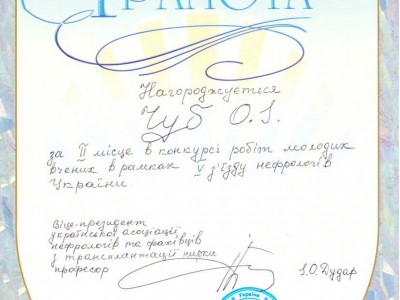 ГРАМОТА
Нагороджується
Чуб О.І.
за ІІ місце в конкурсі робіт молодих
вчених в рамках V з'їзду нефрологів
України.
Віце-президент
української асоціації
нефрологів та фахівців
з трансплантації нирки
професор
І.О.Дудар
Україна